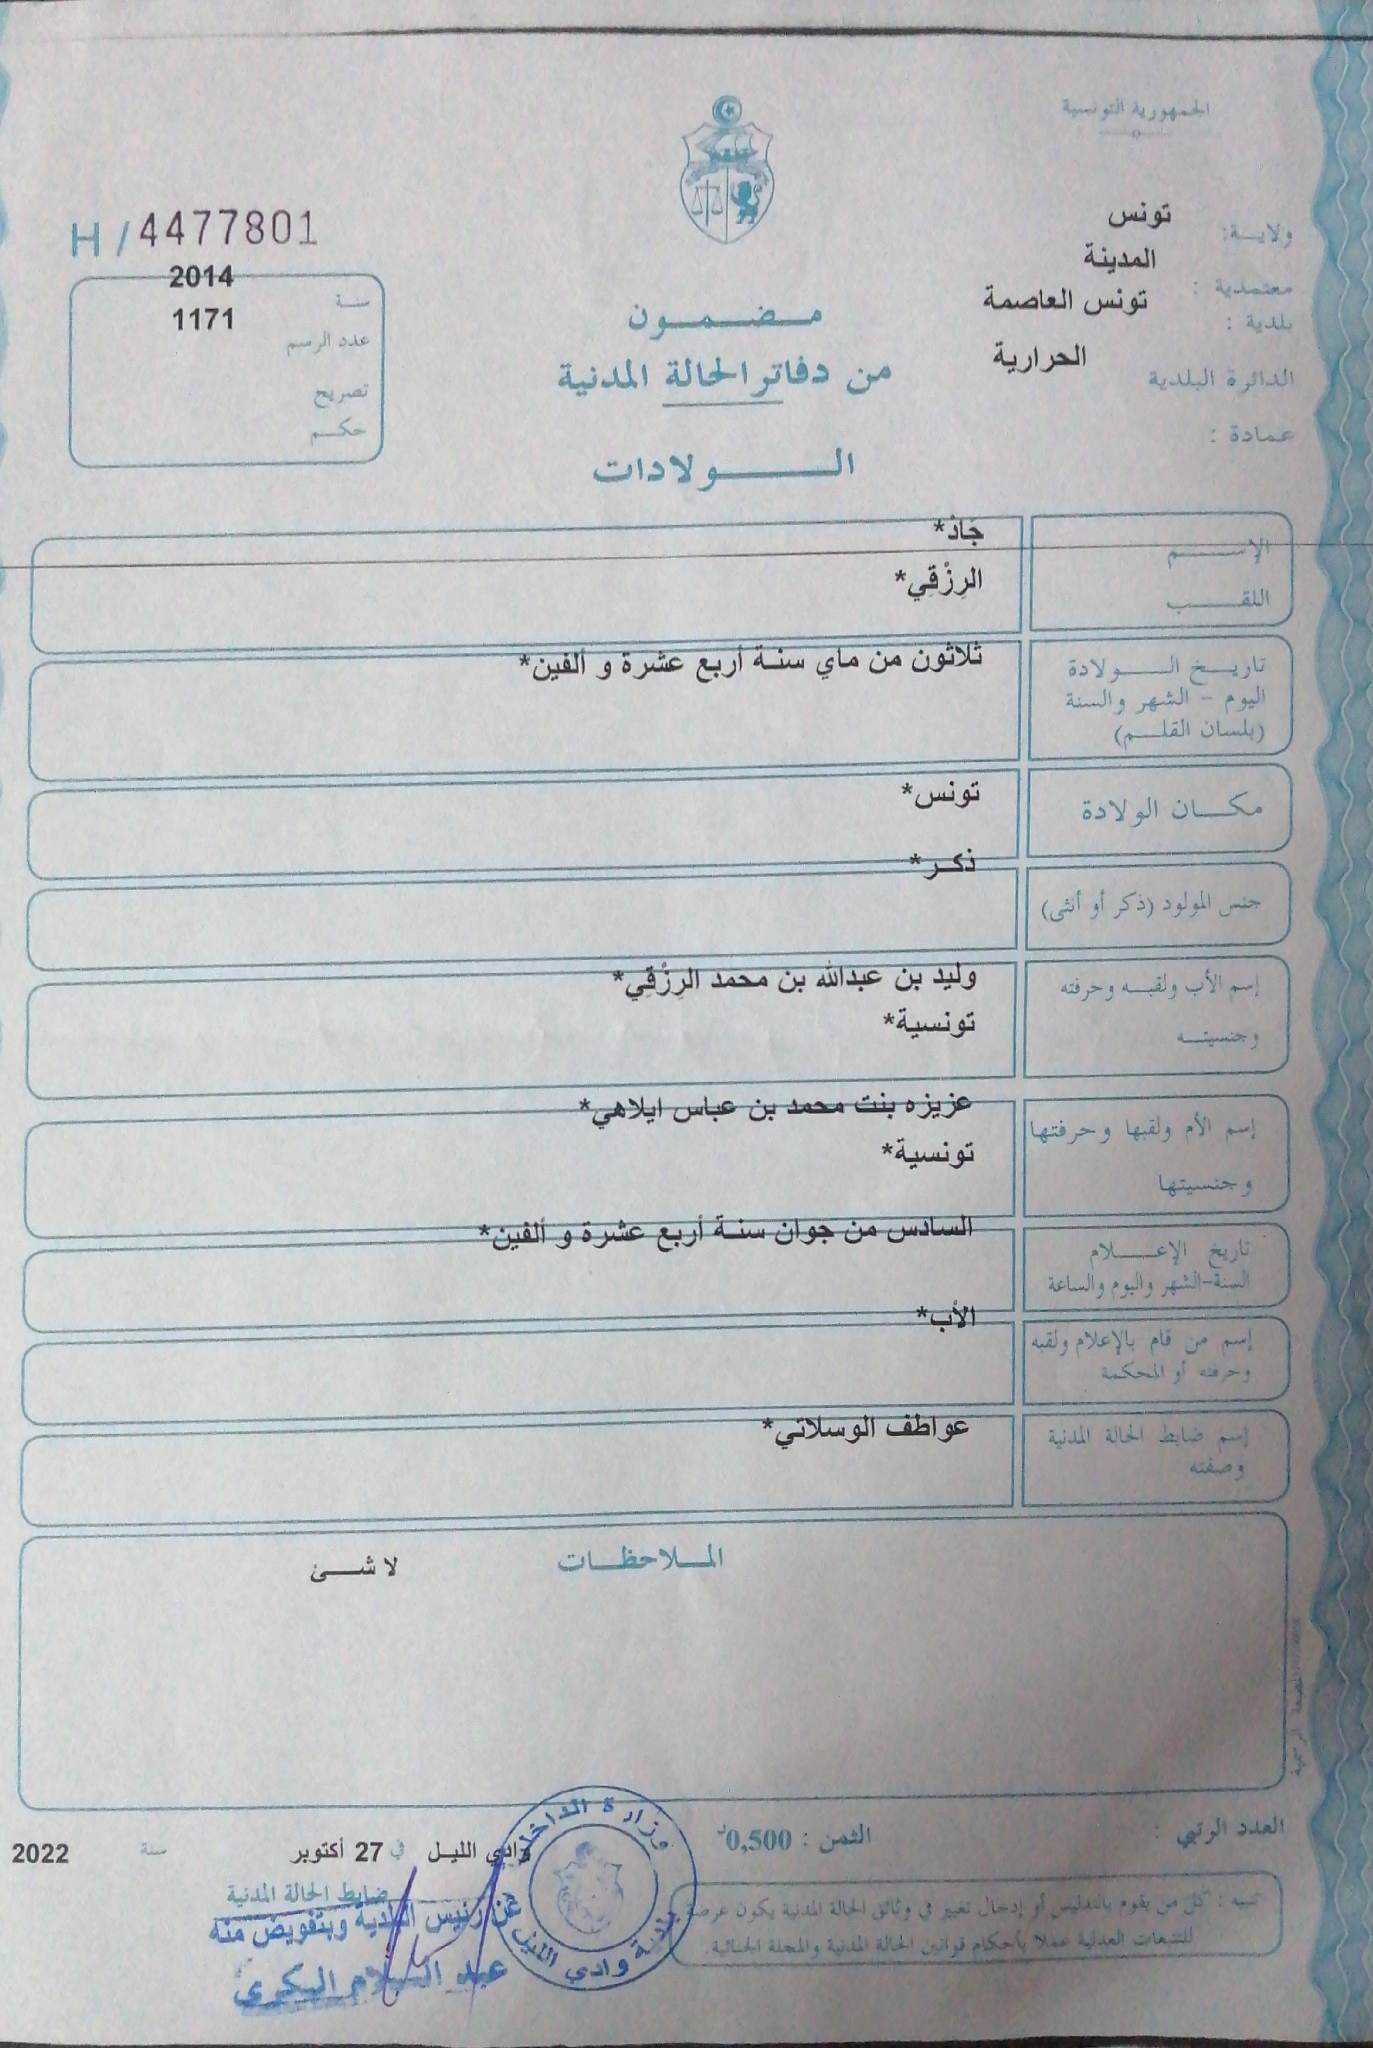 الجمهورية التونسية
ولاية: تونس
معتمدية : المدينة
بلدية : تونس العاصمة
الدائرة البلدية الحرارية
عمادة :
H / 4477801
سنة 2014
عدد الرسم 1171
تصريح
حكم
مضمون
من دفاتر الحالة المدنية
الولادات
الإسم جَادْ*
اللقب الرِزْقِي*
تاريخ الولادة ثلاثون من ماي سنة أربع عشرة و ألفين*
اليوم - الشهر والسنة
(بلسان القلم)
مكان الولادة تونس*
جنس المولود (ذكر أو أنثى) ذكر*
إسم الأب ولقبه وحرفته وليد بن عبدالله بن محمد الرِزْقِي*
وجنسيته تونسية*
إسم الأم ولقبها وحرفتها عزيزه بنت محمد بن عباس ايلاهي*
وجنسيتها تونسية*
تاريخ الإعلام السادس من جوان سنة أربع عشرة و ألفين*
السنة-الشهر واليوم والساعة
إسم من قام بالإعلام ولقبه الأب*
وحرفته أو المحكمة
إسم ضابط الحالة المدنية عواطف الوسلاتي*
وصفته
الملاحظات لا شئ
العدد الرتبي :
الثمن : 0,500د
وادي الليل في 27 أكتوبر سنة 2022
ضابط الحالة المدنية
عن رئيس البلدية وبتفويض منه
عبد السلام البكري
وزارة الداخلية
بلدية وادي الليل
تنبيه : كل من يقوم بالتدليس أو إدخال تغيير في وثائق الحالة المدنية يكون عرضة
للتتبعات العدلية عملا بأحكام قوانين الحالة المدنية والمجلة الجنائية.